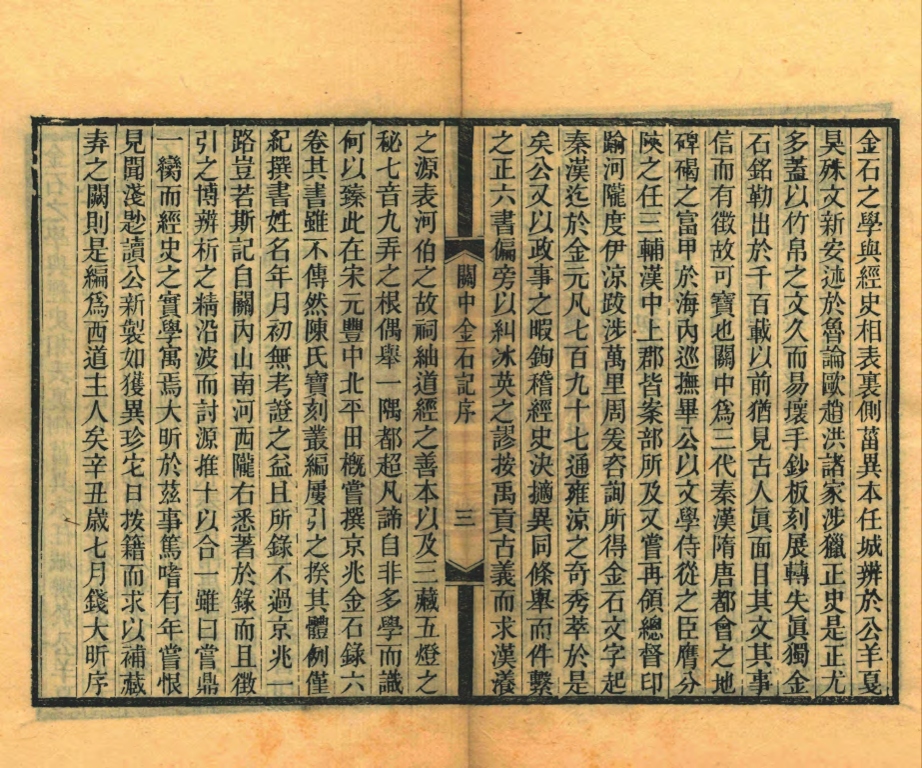 金石之學與經史相表裏側菑異本任城辨於公羊戛
臭殊文新安述於魯論歐趙洪諸家涉獵正史是正尤
多蓋以竹帛之文久而易壞手鈔板刻展轉失眞獨金
石銘勒出於千百載以前猶見古人眞面目其文其事
信而有徵故可寶也關中爲三代秦漢隋唐都會之地
碑碣之富甲於海內巡撫畢公以文學侍從之臣膺分
陝之任三輔漢中上郡皆案部所及又嘗再領總督印
踰河隴度伊涼跋涉萬里周爰咨詢所得金石文字起
秦漢迄於金元凡七百九十七通雍涼之奇秀萃於是
矣公又以政事之暇鉤稽經史決擿異同條舉而件繫
之正六書偏旁以糾冰英之謬按禹貢古義而求漢瀁
關中金石記序
三
之源表河伯之故祠紬道經之善本以及三藏五燈之
秘七音九弄之根偶舉一隅都超凡諦自非多學而識
何以臻此在宋元豐中北平田槪嘗撰京兆金石錄六
卷其書雖不傳然陳氏寶刻叢編屢引之揆其體例僅
紀撰書姓名年月初無考證之益且所錄不過京兆一
路豈若斯記自關內山南河西隴右悉著於錄而且徵
引之博辨析之精沿波而討源推十以合一雖曰嘗鼎
一臠而經史之實學寓焉大昕於茲事篤嗜有年嘗恨
見聞淺尟讀公新製如獲異珍它日按籍而求以補藏
弆之闕則是編爲西道主人矣辛丑歲七月錢大昕序